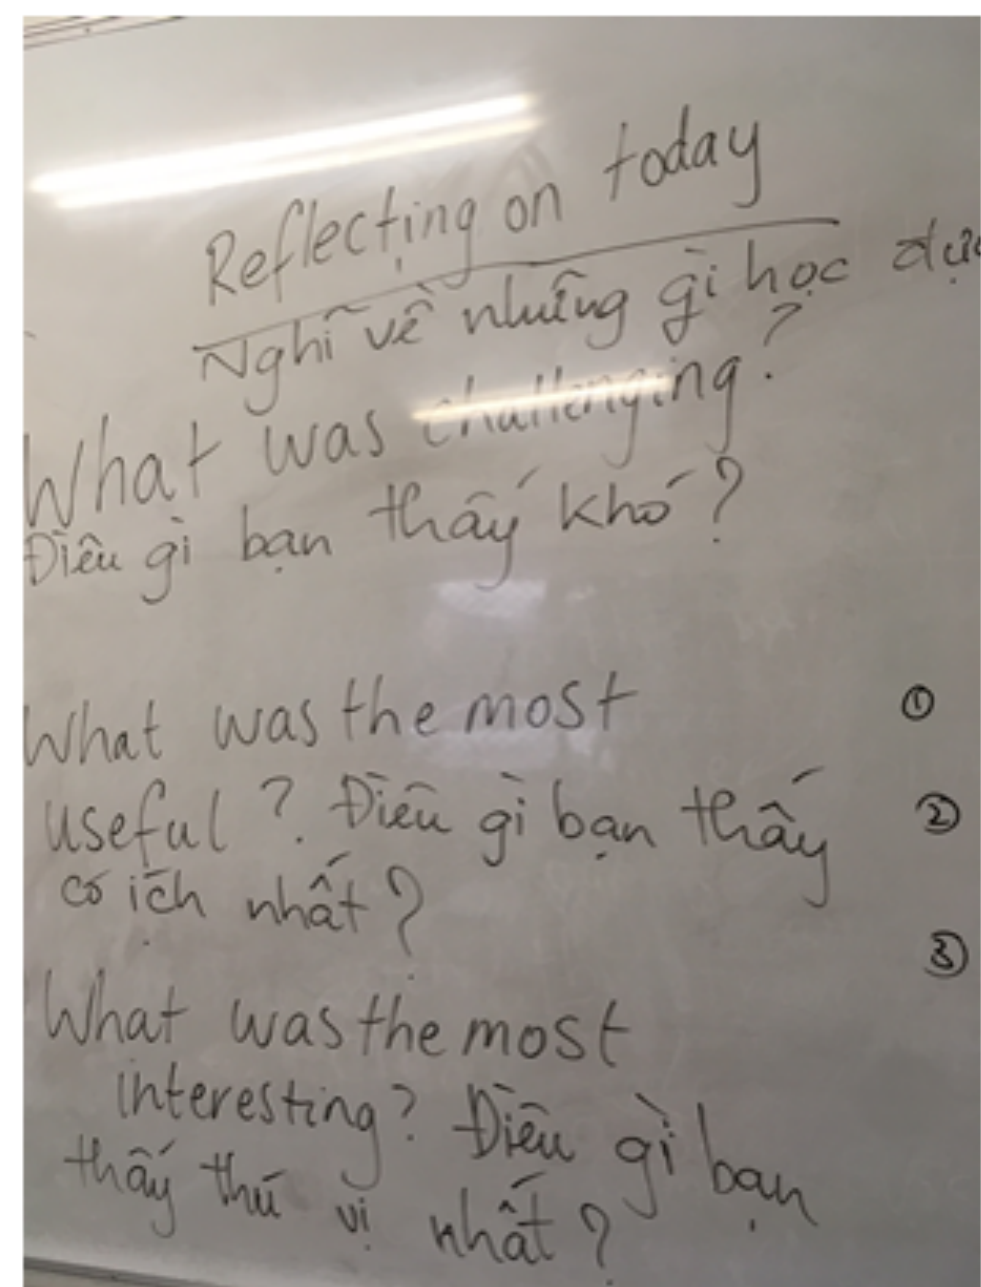 Reflecting on today
Nghĩ về những gì học
What was challenging?
Điều gì bạn thấy khó?
What was the most
useful? Điều gì bạn thấy
có ích nhất?
What was the most
interesting? Điều gì bạn
thấy thú vị nhất?
①
②
③